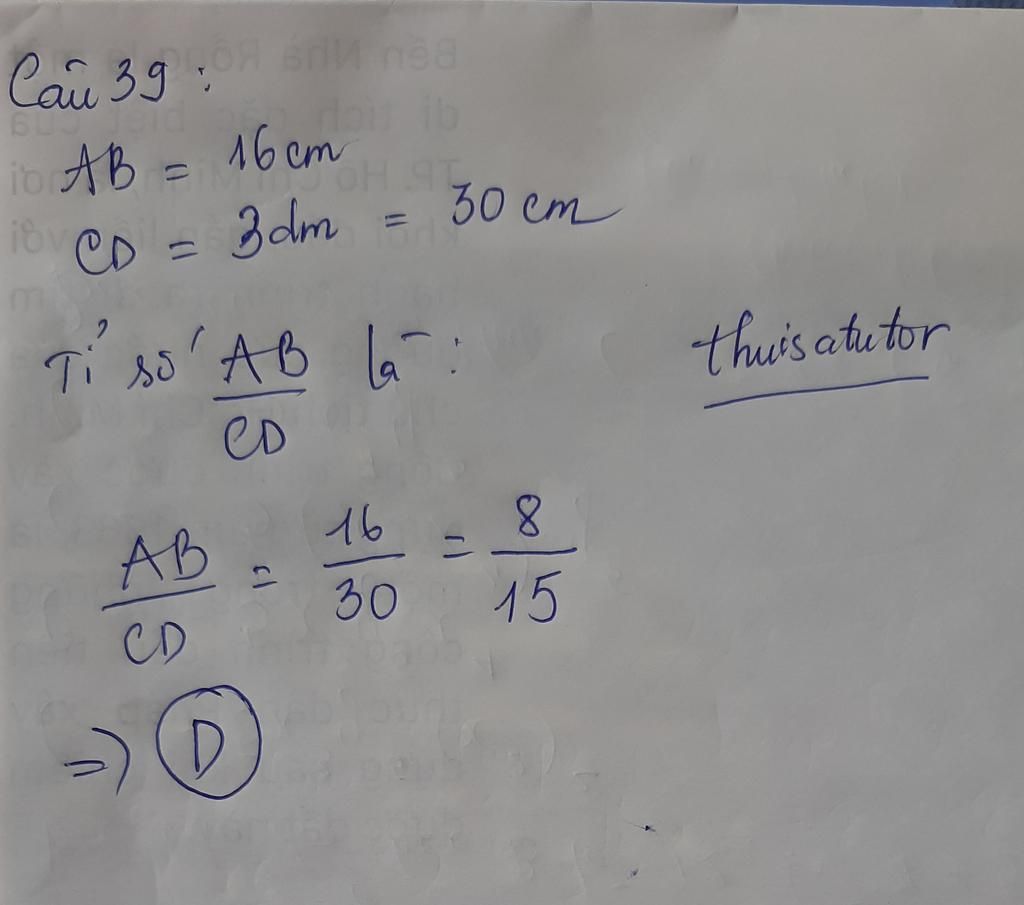 Câu 39 :
AB = 16 cm
CD = 3dm = 30 cm
Tỉ số AB/CD là :
thuisatutor
AB/CD = 16/30 = 8/15
=> D